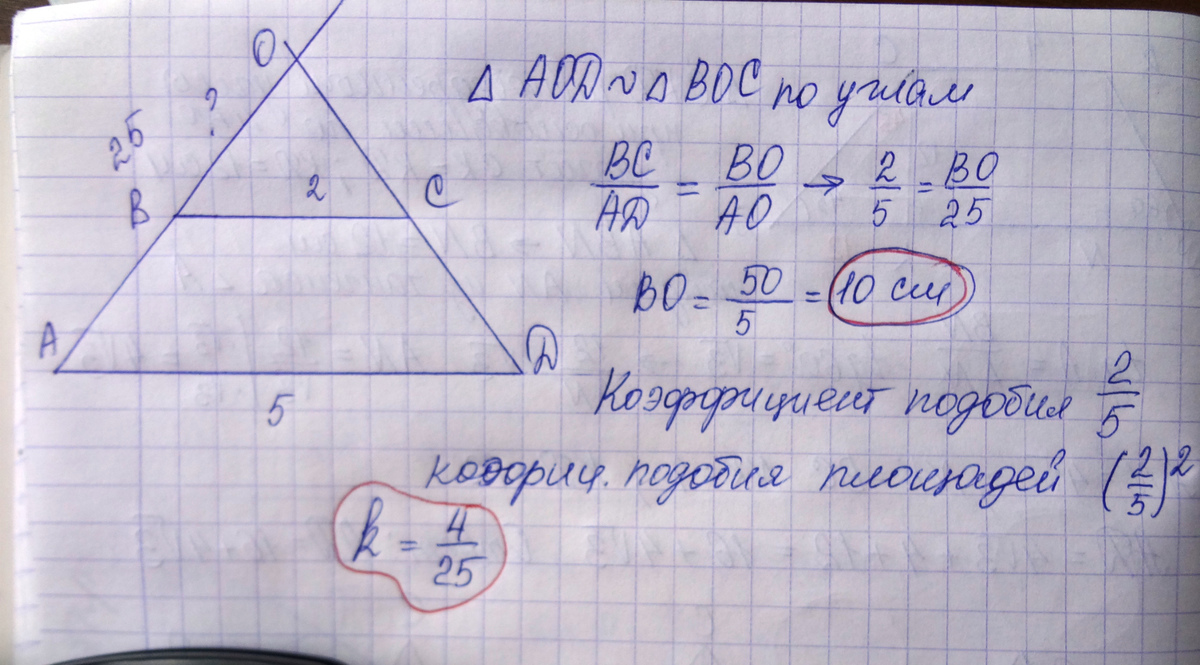 O
? 
25
B 2 C
A D
5
Δ AOD ~ Δ BOC по углам
BC/AD = BO/AO → 2/5 = BO/25
BO = 50/5 = 10 см
Коэффициент подобия 2/5
коэффиц. подобия площадей (2/5)²
k = 4/25